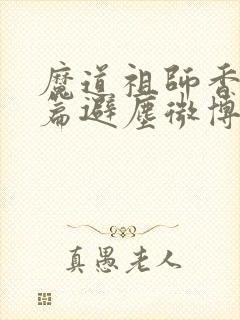 魔道祖師香
篇避塵微博
真愚老人